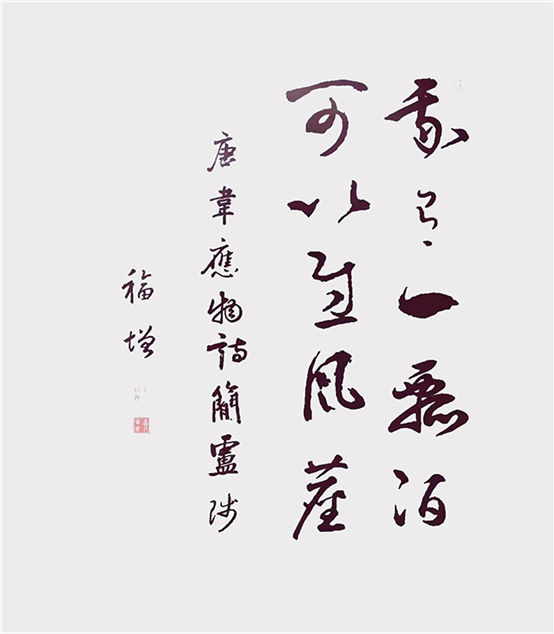 我有一瓢酒
可以慰風塵
唐韋應物詩簡盧陟
福增